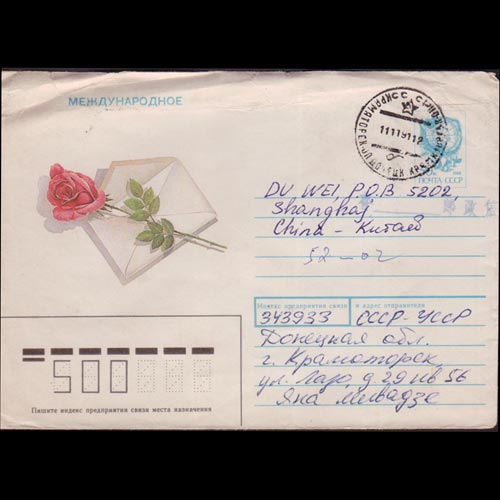 МЕЖДУНАРОДНОЕ
11 11 91 18
ПОЧТА СССР
DU WEI, P.O.B 5202,
Shanghaj
China - Китай
52-02
Индекс предприятия связи и адрес отправителя
343933 СССР-УССР
Донецкая обл.
г. Краматорск,
ул. Лазо, д 29 кв 56
Яна Мивадзе
500
Пишите индекс предприятия связи места назначения